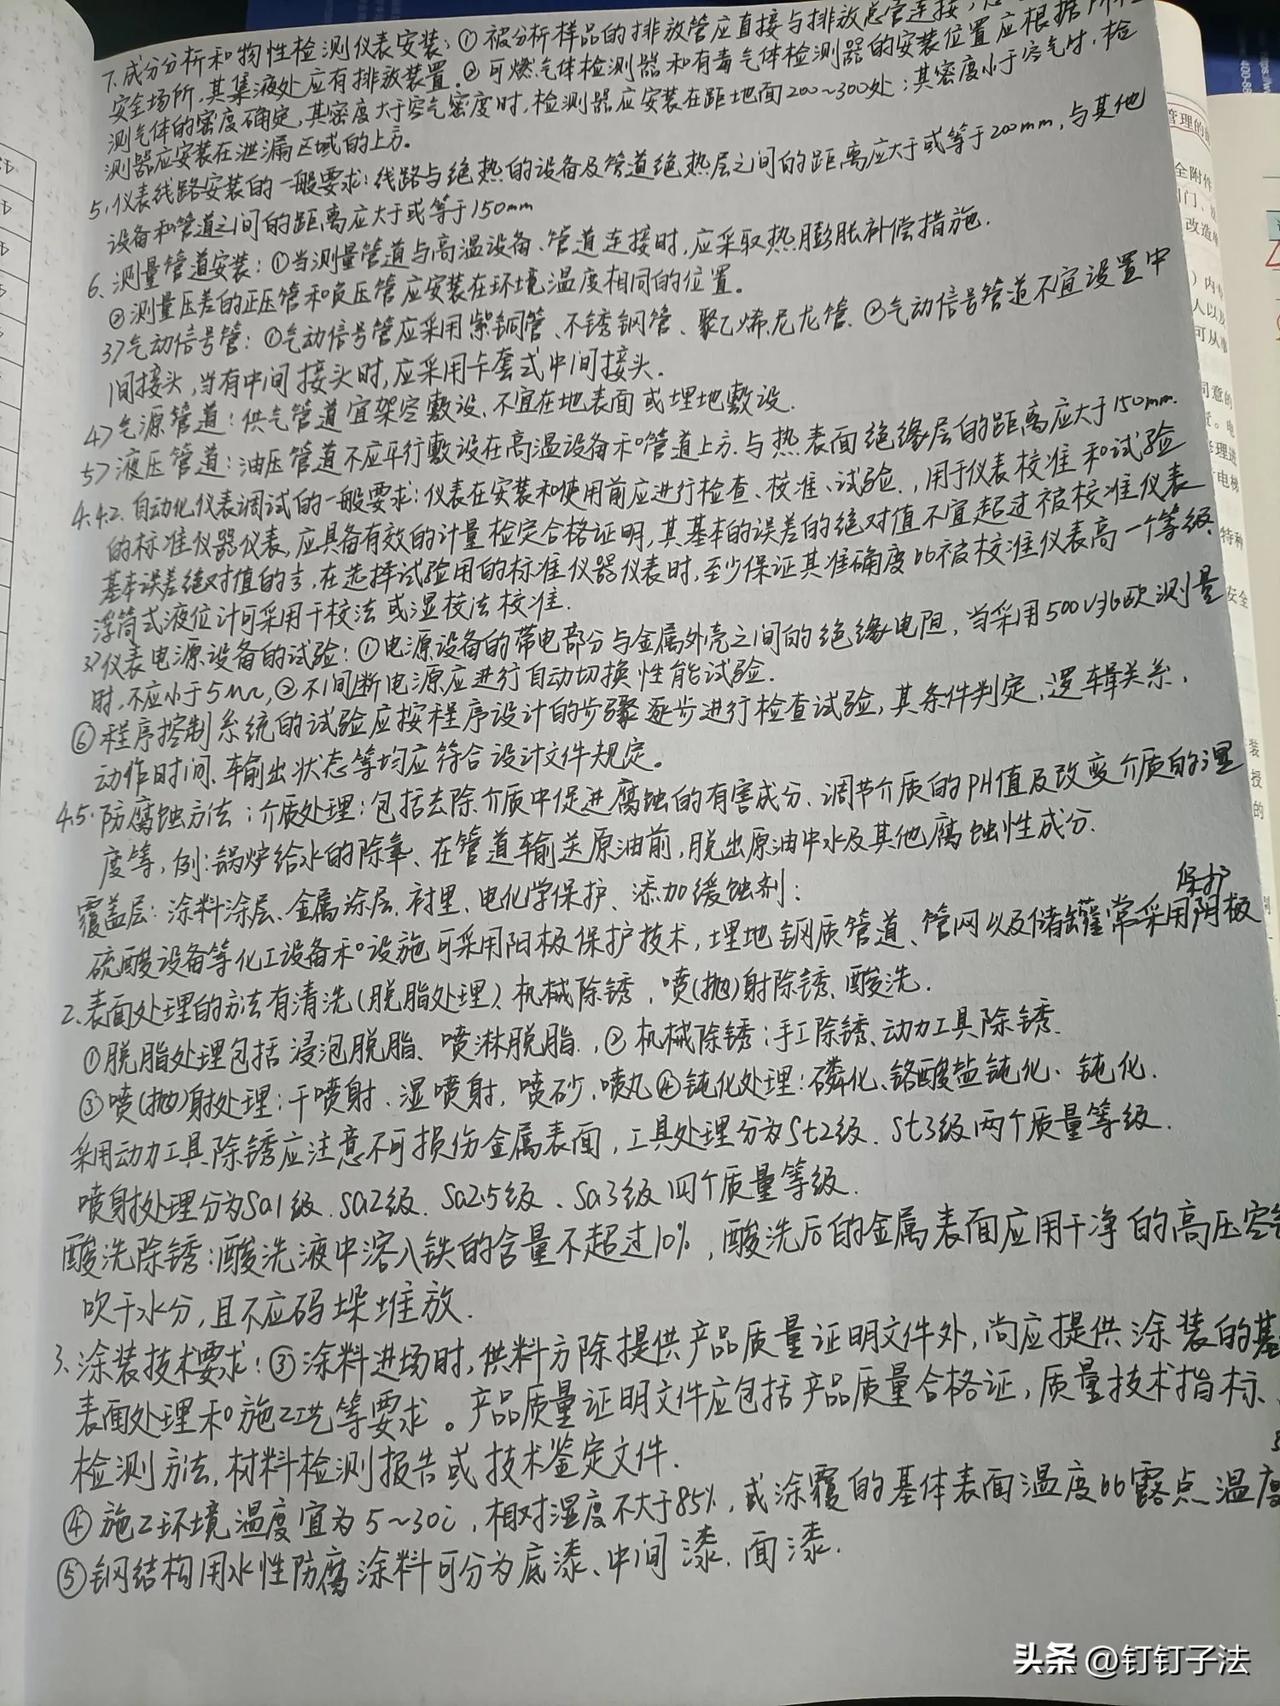 7.成分分析和物性检测仪表安装:①被分析样品的排放管应直接与排放总管连接,
安全场所,其集液处应有排放装置.②可燃气体检测器和有毒气体检测器的安装位置应根据所检
测气体的密度确定,其密度大于空气密度时,检测器应安装在距地面200~300处;其密度小于空气时,检
测器应安装在泄漏区域的上方。
5.仪表线路安装的一般要求:线路与绝热的设备及管道绝热层之间的距离应大于或等于200mm,与其他
设备和管道之间的距离应大于或等于150mm
6.测量管道安装:①当测量管道与高温设备、管道连接时,应采取热膨胀补偿措施.
②测量压差的正压管和负压管应安装在环境温度相同的位置。
3>气动信号管:①气动信号管应采用紫铜管、不锈钢管、聚乙烯.尼龙管.②气动信号管道不宜设置中
间接头,当有中间接头时,应采用卡套式中间接头.
4>气源管道:供气管道宜架空敷设、不宜在地表面或埋地敷设.
5>液压管道:油压管道不应平行敷设在高温设备和管道上方.与热表面绝缘层的距离应大于150mm.
4.4.2.自动化仪表调试的一般要求:仪表在安装和使用前应进行检查、校准、试验.,用于仪表校准和试验
的标准仪器仪表,应具备有效的计量检定合格证明,其基本的误差的绝对值不宜超过被校准仪表
基本误差绝对值的⅓,在选择试验用的标准仪器仪表时,至少保证其准确度比被校准仪表高一个等级.
浮筒式液位计可采用干校法或湿校法校准.
3>仪表电源设备的试验:①电源设备的带电部分与金属外壳之间的绝缘电阻,当采用500V兆欧测量
时,不应小于5MΩ,②不间断电源应进行自动切换性能试验.
⑥程序控制系统的试验应按程序设计的步骤逐步进行检查试验,其条件判定,逻辑关系,
动作时间、输出状态等均应符合设计文件规定。
4.5.防腐蚀方法:介质处理:包括去除介质中促进腐蚀的有害成分、调节介质的PH值及改变介质的湿
度等,例:锅炉给水的除氧、在管道输送原油前,脱出原油中水及其他腐蚀性成分.
覆盖层:涂料涂层、金属涂层,衬里、电化学保护、添加缓蚀剂:
保护
硫酸设备等化工设备和设施可采用阳极保护技术,埋地钢质管道、管网以及储罐常采用阴极
2.表面处理的方法有清洗(脱脂处理)、机械除锈,喷(抛)射除锈、酸洗.
①脱脂处理包括浸泡脱脂、喷淋脱脂.,②机械除锈:手工除锈、动力工具除锈.
③喷(抛)射处理:干喷射、湿喷射,喷砂,喷丸④钝化处理:磷化、铬酸盐钝化、钝化.
采用动力工具除锈应注意不可损伤金属表面,工具处理分为St2级、St3级两个质量等级.
喷射处理分为Sa1级、Sa2级、Sa2.5级、Sa3级四个质量等级.
酸洗除锈:酸洗液中溶入铁的含量不超过10%,酸洗后的金属表面应用干净的高压空
吹干水分,且不应码垛堆放.
3.涂装技术要求:③涂料进场时,供料方除提供产品质量证明文件外,尚应提供涂装的基
表面处理和施工工艺等要求。产品质量证明文件应包括产品质量合格证,质量技术指标、
检测方法,材料检测报告或技术鉴定文件.
④施工环境温度宜为5~30℃,相对湿度不大于85%,或涂覆的基体表面温度比露点温度
⑤钢结构用水性防腐涂料可分为底漆、中间漆、面漆.
管理的
全附件
改造
内
人以
可从事
同意的
修理进
电梯
特种
安全
装
授
的
头条 @钉钉子法